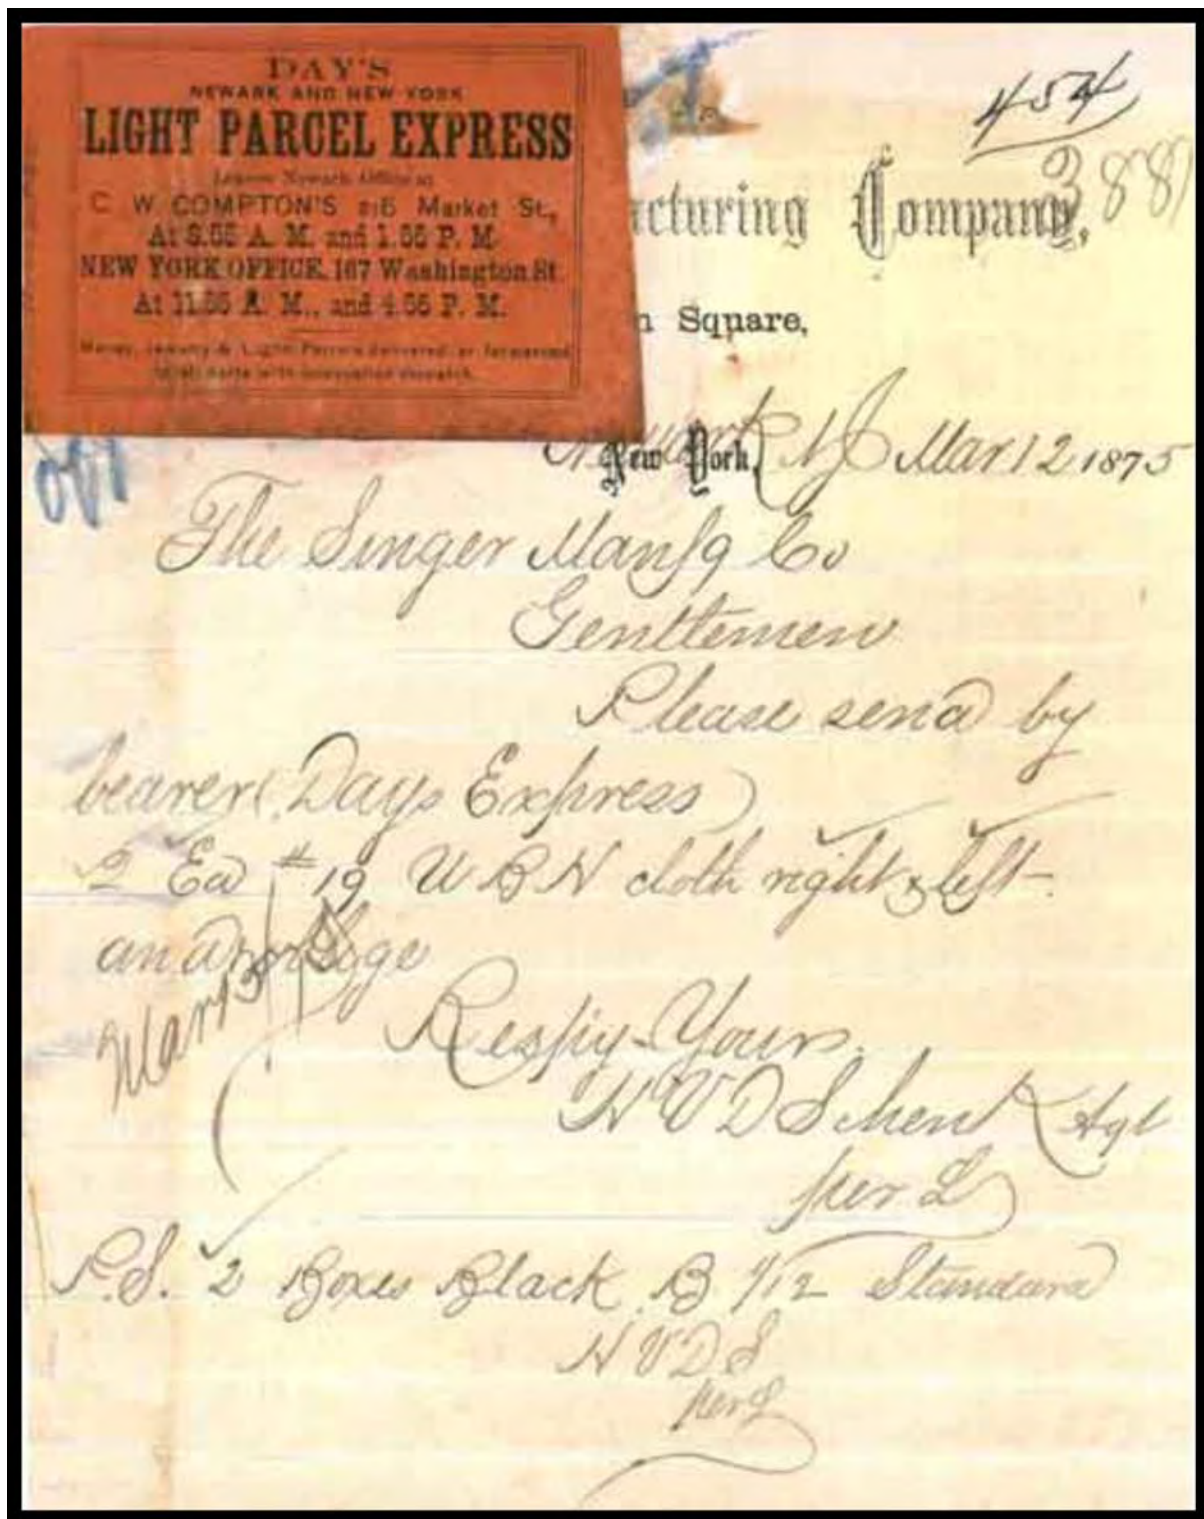 DAY'S
NEWARK AND NEW YORK
LIGHT PARCEL EXPRESS
Leaves Newark Office at
C. W. COMPTON'S 216 Market St.,
At 8.55 A. M. and 1.55 P. M.
NEW YORK OFFICE, 167 Washington St.
At 11.55 A. M., and 4.55 P. M.
Money, Jewelry & Light Parcels delivered or forwarded
to all parts with
454
3881
acturing Company,
n Square,
New York,
Newark NJ Mar 12 1875
The Singer Manfg Co
Gentlemen
Please send by
bearer (Days Express)
2 Ea # 19 U B H cloth right & left
and
Mar 13
Respy Yours
H V D Schenk Agt
per L
P.S. 2 Boxes Black B 1/12 Standard
H V D S
per L